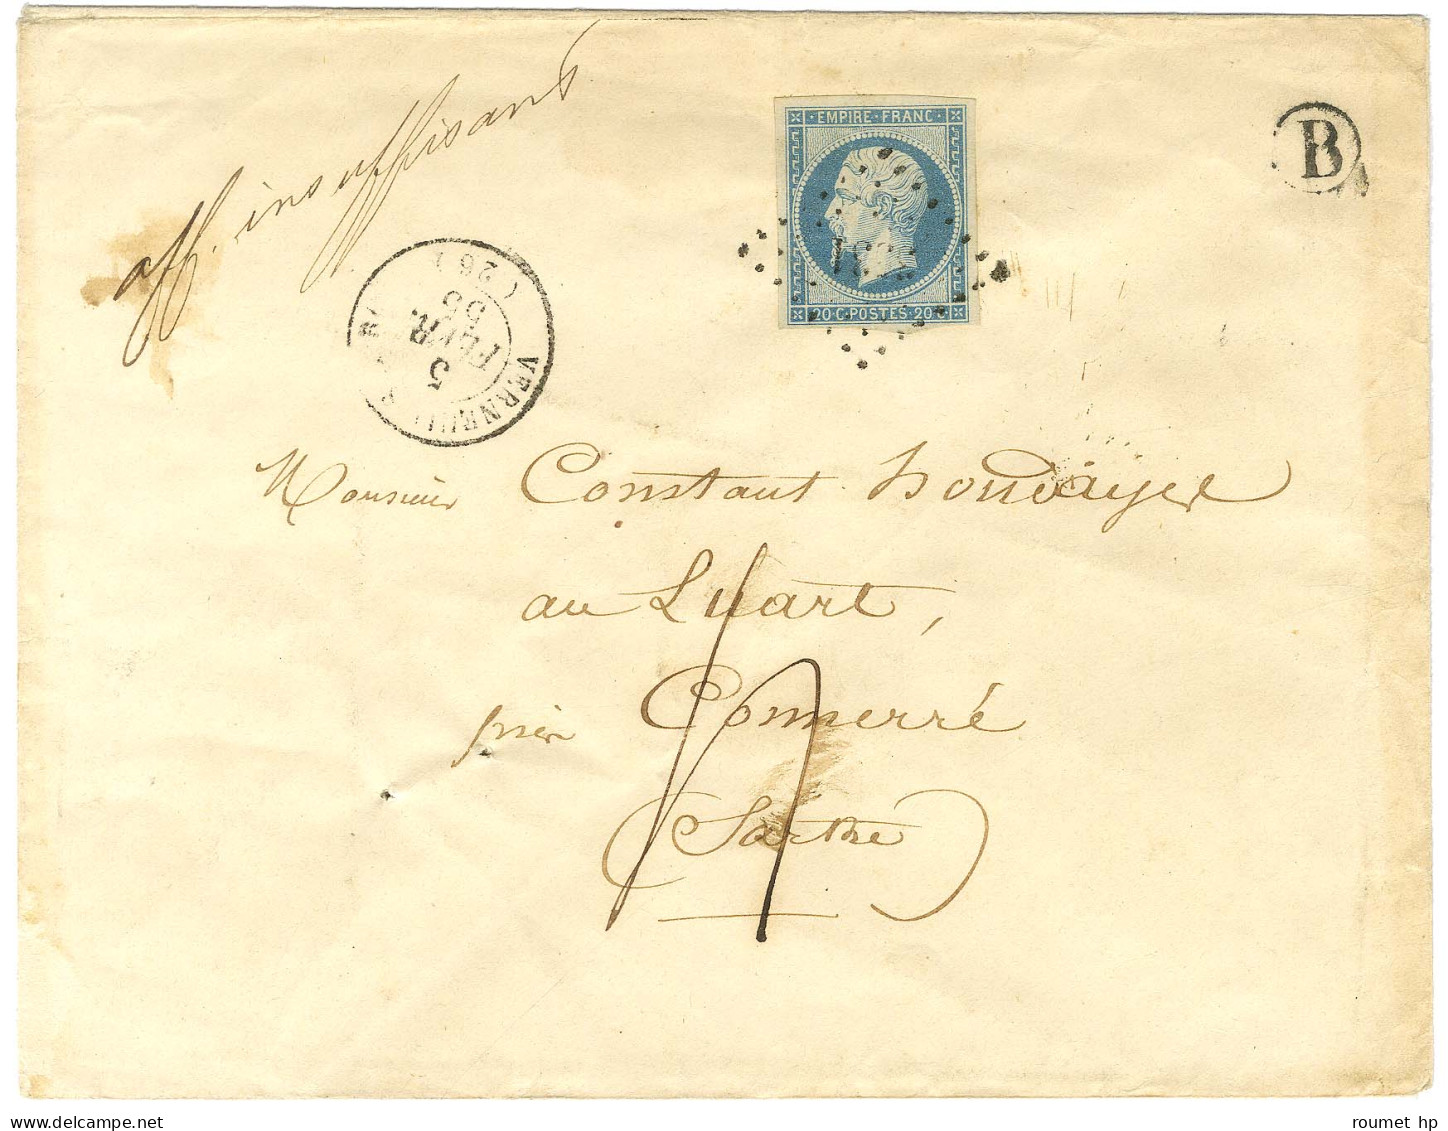 aff. insuffisant
EMPIRE · FRANC ·
20 · C · POSTES · 20 · C
B
VERNEUIL
5
FEVR.
55
(26)
Monsieur Constant
au Luart,
près Connerré
(Sarthe)
roumet hp